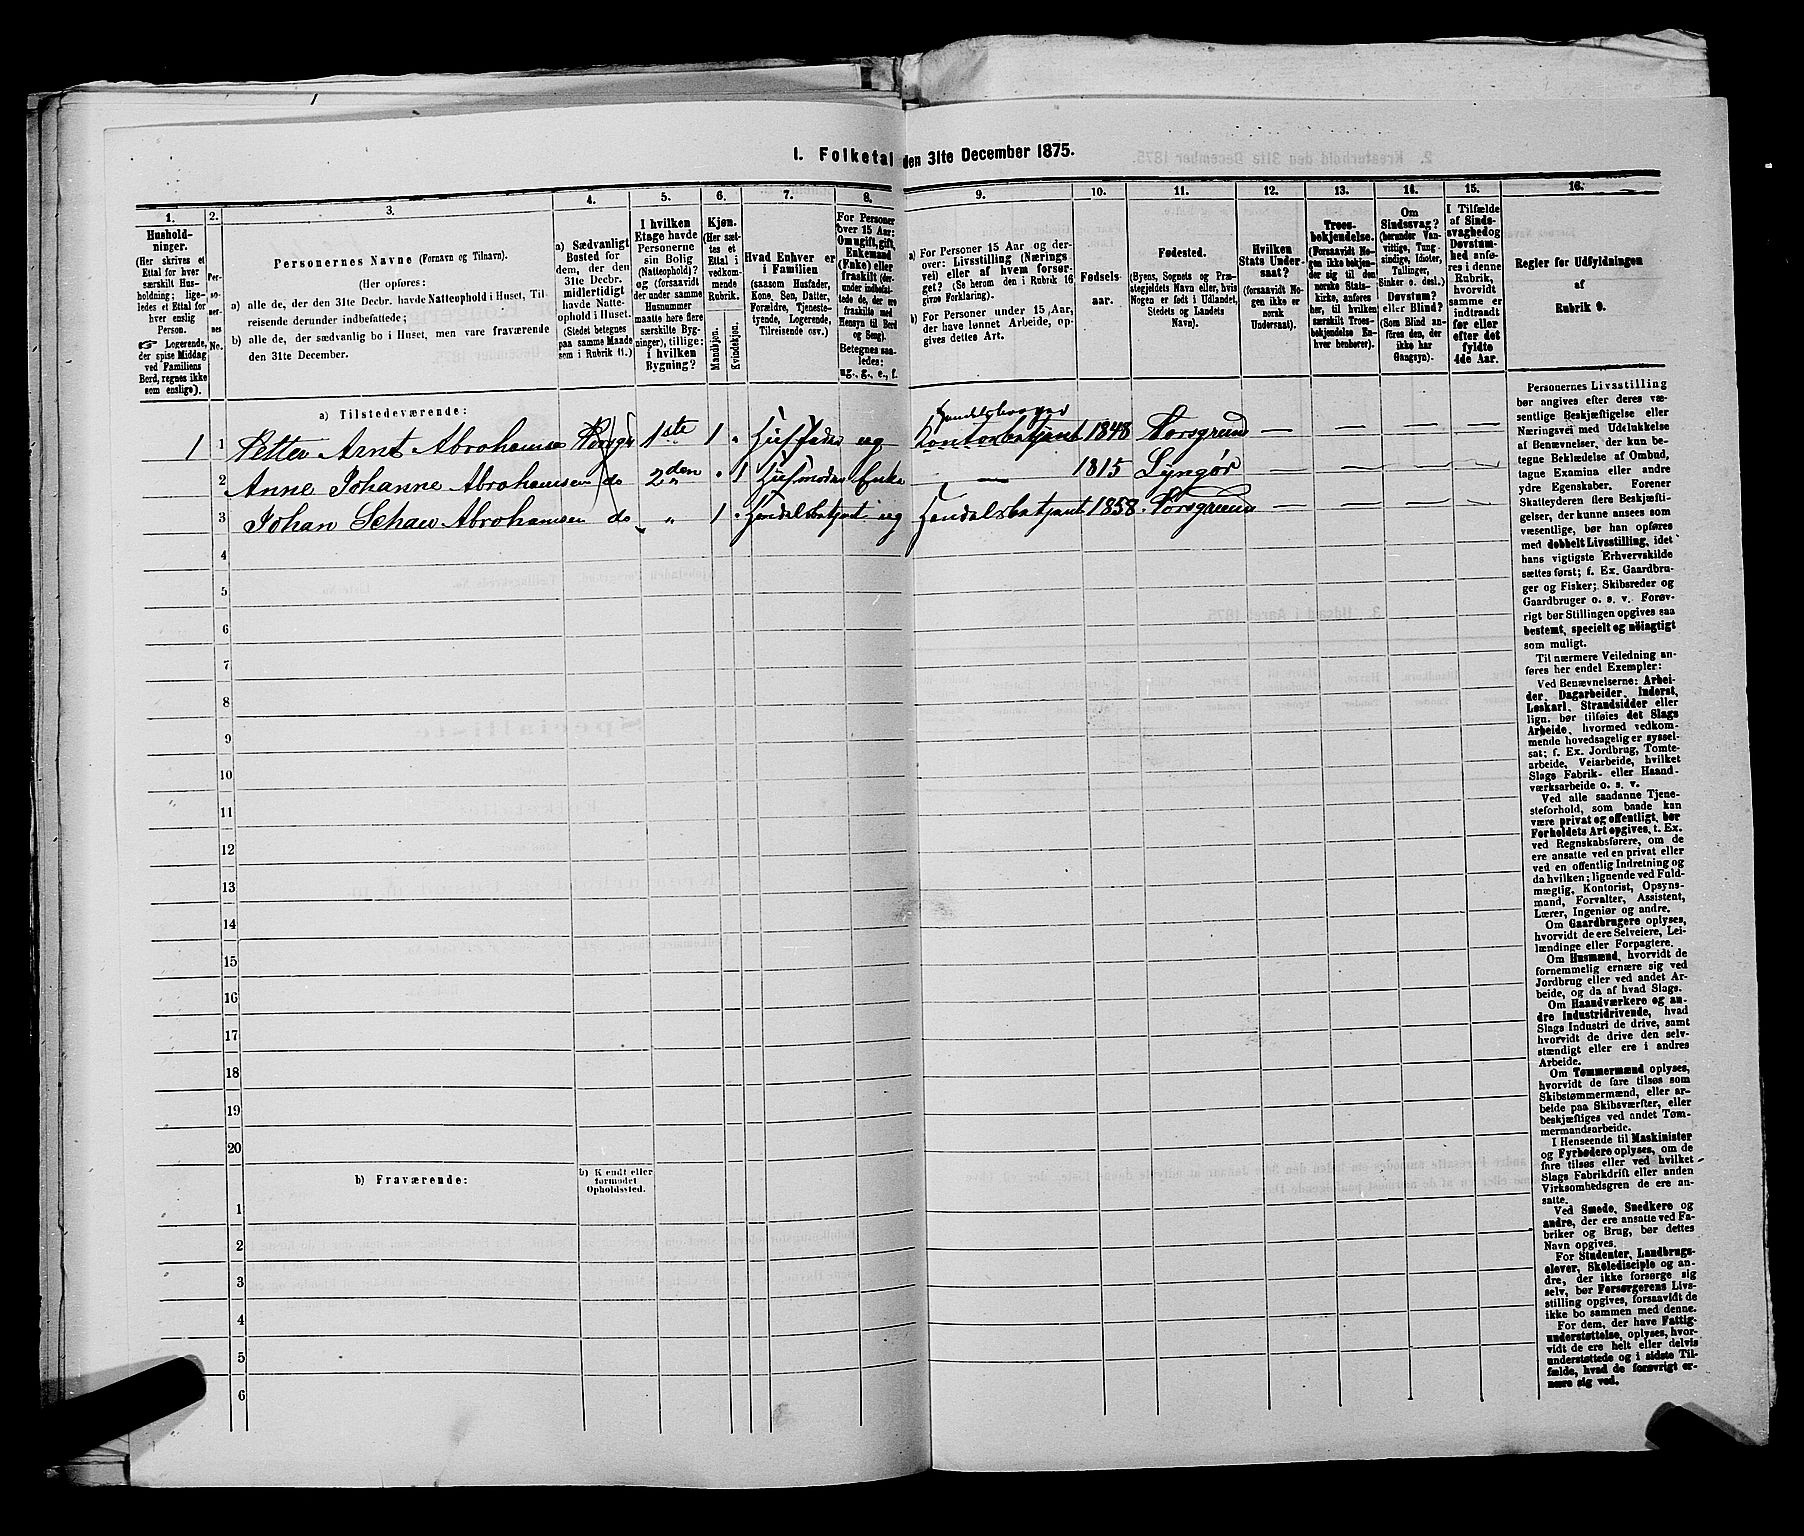 1. Folketal den 31te December 1875.
1. 2. 3. 4. 5. 6. 7. 8. 9. 10. 11. 12. 13. 14. 15. 16.
Hushold-
ninger.
(Her skrives et
Ettal for hver
særskilt Hus-
holdning; lige-
ledes et Ettal for
hver enslig
Person.
☞ Logerende,
der spise Middag
ved Familiens
Bord, regnes ikke
som enslige).
Per-
so-
ner-
nes
No.
Personernes Navne (Fornavn og Tilnavn).
(Her opføres:
a) alle de, der den 31te Decbr. havde Natteophold i Huset, Til-
reisende derunder indbefattede;
b) alle de, der sædvanlig bo i Huset, men vare fraværende
den 31te December.
a) Sædvanligt
Bosted for
dem, der den
31te Decbr.
midlertidigt
havde Natte-
ophold i Huset.
(Stedet betegnes
paa samme Maade
som i Rubrik 11.)
I hvilken
Etage havde
Personerne
sin Bolig
(Natteophold)?
og (forsaavidt
der under samme
Husnummer
maatte være flere
særskilte Byg-
ninger), tillige:
i hvilken
Bygning?
Kjøn.
(Her sæt-
tes et
Ettal i
vedkom-
mende
Rubrik.
Mandkjøn.
Kvindekjøn.
Hvad Enhver er
i Familien
(saasom Husfader,
Kone, Søn, Datter,
Forældre, Tjeneste-
tyende, Logerende,
Tilreisende osv.)
For Personer
over 15 Aar:
Om ugift, gift,
Enkemand
(Enke) eller
fraskilt (der-
under indbefat-
tede de, der ere
fraskilte med
Hensyn til Bord
og Seng).
Betegnes saa-
ledes:
ug., g., e., f.
a) For Personer 15 Aar og der-
over: Livsstilling (Nærings
vei) eller af hvem forsør-
get? (Se herom den i Rubrik 16
givne Forklaring).
b) For Personer under 15 Aar,
der have lønnet Arbeide, op-
gives dettes Art.
Fødsels-
aar.
Fødested.
(Byens, Sognets og Præ-
stegjeldets Navn eller, hvis
Nogen er født i Udlandet,
Stedets og Landets
Navn).
Hvilken
Stats Under-
saat?
(forsaavidt No-
gen ikke er
norsk
Undersaat).
Troes-
bekjendelse.
(Forsaavidt No-
gen ikke bekjen-
der sig til den
norske Stats-
kirke, anføres
her, til hvilken
særskilt Troes-
bekjendelse En-
hver henhører).
Om
Sindssvag?
(herunder Van-
vittige, Tung-
sindige, Idioter,
Tullinger,
Sinker o. desl.)
Døvstum?
eller Blind?
(Som Blind an-
føres den, der
ikke har
Gangsyn).
I Tilfælde
af Sinds-
svaghed og
Døvstum-
hed anfø-
res i denne
Rubrik,
hvorvidt
samme er
indtraadt
før eller
efter det
fyldte
4de Aar.
Regler for Udfyldningen
af
Rubrik 9.
a) Tilstedeværende:
Handelsborger
1 1 Petter Arnt Abrahamsen 1ste 1 " Husfader ug Kontorbetjent 1848 Porsgrund — — — —
2 Anne Johanne Abrahamsen do 2den " 1 Husmoder Enke — 1815 Lyngør — — — —
3 Johan Schau Abrahamsen do " 1 " Handelsbetjent ug Handelsbetjent 1858 Porsgrund — — — —
4
5
6
7
8
9
10
11
12
13
14
15
16
17
18
19
20
b) Fraværende:
b) Kjendt eller
formodet
Opholdssted.
1
2
3
4
5
6
Personernes Livsstilling
bør angives efter deres væ-
sentlige Beskjæftigelse eller
Næringsvei med Udelukkelse
af Benævnelser, der kun be-
tegne Beklædelse af Ombud,
tagne Examina eller andre
ydre Egenskaber. Forener
Skatteyderen flere Beskjæfti-
gelser, der kunne ansees som
væsentlige, bør han opføres
med dobbelt Livsstilling, idet
hans vigtigste Erhvervskilde
sættes først; f. Ex. Gaardbru-
ger og Fisker; Skibsreder og
Gaardbruger o. s. v. Forøv-
rigt bør Stillingen opgives saa
bestemt, specielt og nøiagtigt
som muligt.
Til nærmere Veiledning an-
føres her endel Exempler:
Ved Benævnelserne: Arbei-
der, Dagarbeider, Inderst,
Løskarl, Strandsidder eller
lign. bør tilføies det Slags
Arbeide, hvormed vedkom-
mende hovedsagelig er syssel-
sat; f. Ex. Jordbrug, Tomte-
arbeide, Veiarbeide, hvilket
Slags Fabrik- eller Haand-
værksarbeide o. s. v.
Ved alle saadanne Tjene-
steforhold, som baade kan
være privat og offentligt, bør
Forholdets Art opgives, t. Ex.
ved Regnskabsførere, om de
ere ansatte ved en privat eller
ved en offentlig Indretning og
da hvilken; lignende ved Fuld-
mægtig, Kontorist, Opsyns-
mand, Forvalter, Assistent,
Lærer, Ingeniør og andre.
Om Gaardbrugere oplyses,
hvorvidt de ere Selveiere, Lei-
lændinge eller Forpagtere.
Om Husmænd, hvorvidt de
fornemmelig ernære sig ved
Jordbrug eller ved andet Ar-
beide, og da af hvad Slags.
Om Haandværkere og an-
dre Industridrivende, hvad
Slags Industri de drive, samt
hvorvidt de drive den selv-
stændigt eller ere i andres
Arbeide.
Om Tømmermænd oplyses,
hvorvidt de fare tilsøs som
Skibstømmermænd, eller ar-
beide paa Skibsværfter, eller
beskjæftiges ved andet Tøm-
mermandsarbeide.
I Henseende til Maskinister
og Fyrbødere oplyses, om de
fare tilsøs eller ved hvilket
Slags Fabrikdrift eller anden
Virksomhedsgren de ere an-
satte.
Ved Smede, Snedkere og
andre, der ere ansatte ved Fa-
briker og Brug, bør dettes
Navn opgives.
For Studenter, Landbrugs-
elever, Skoledisciple og an-
dre, der ikke forsørge sig
selv, bør Forsørgerens Livs-
stilling opgives, forsaavidt de
ikke bo sammen med denne.
For dem, der have Fattig-
understøttelse, oplyses, hvor-
vidt de ere helt eller delvis
understøttede og i sidste Til-
fælde, hvad de forøvrigt er-
nære sig ved.